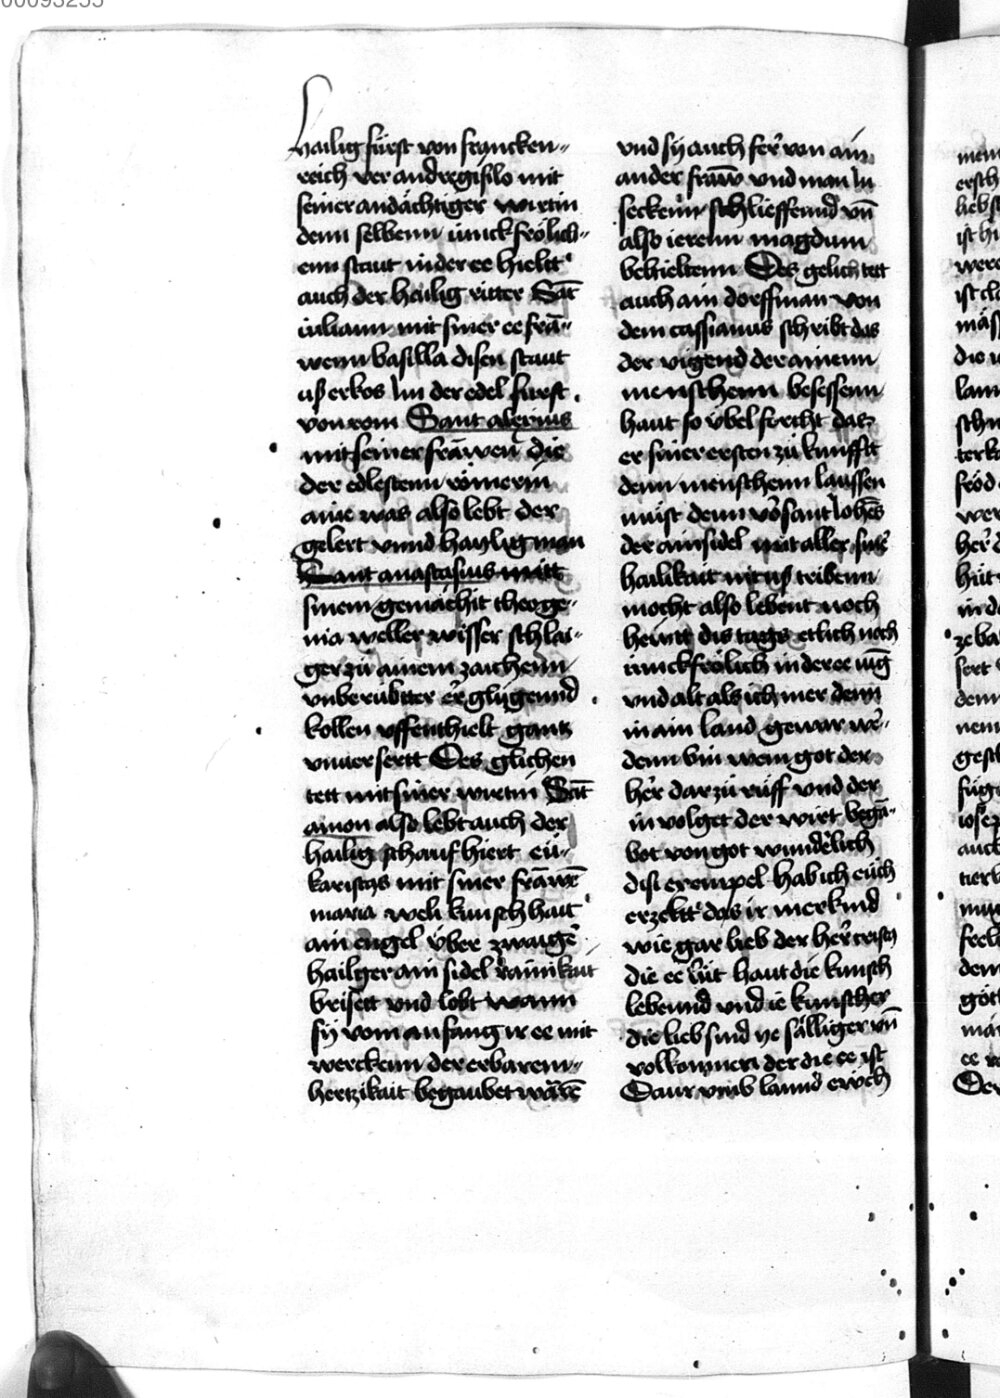 00093255
hailig fürst von francken-
reich ver andregisilo mit
seiner andächtiger wirtin
denn selbenn iunckfrölich-
enn staut in der ee hieltt
auch der heilig ritter Sāt
iuliann mit siner ee frā-
wenn basilla disen staut
uß erkos im der edel fürst
von rom Sant alexius
mit seiner fräwen die
der edlestenn römerin
aine was also lebt der
gelert vnnd haylig man
Sant anastasius mitt
sinem gemächit theoge-
nia weller wisser schlai-
ger zu ainem zaichenn
vnberübtter er glügennd
kollen vffenthielt gantz
vnuersertt Des glichen
tett mit siner wirtin Sāt
amon also lebt auch der
hailig schauf hiert eu-
karistus mit siner fräwē
maria weli künsch hait
ain engel über zwaigē
hailger ain sidel rainikait
brisett vnd lobt wann
sy vom anfang ir ee mit
werckenn der erbarem-
hertzikait begaubet wärē
vnd sy auch fer von ain
ander fräw vnd man in
seckenn schlieffennd vn̄
also ierenn magdum
behieltenn Des gelich tett
auch ain dorffman von
dem cassianus schribt das
der vigend der ainenn
menschenn besessenn
haut so übel forcht das
er siner ersten zu kunfft
denn menschenn laussen
muist denn vor sant Johēs
der ainsidel mit aller sine
hailikait nit uß tribenn
mocht also lebent noch
heütt dis tags etlich noch
iunckfrölich in der ee iūg
vnd alt als ich mer denn
in ain land gewar we-
denn bin wem got der
her dar zu rüff vnd der
in volget der wirt begā-
bot von got wunderlich
disi exempel hab ich euch
erzeltt das ir merkind
wie gar lieb der her cristus
die ee lüt haut die künsch
lebennd vnd ie künscher
die lieb sind ye sälliger vn̄
volkomner der die ee ist
Daur vmb lannd euch